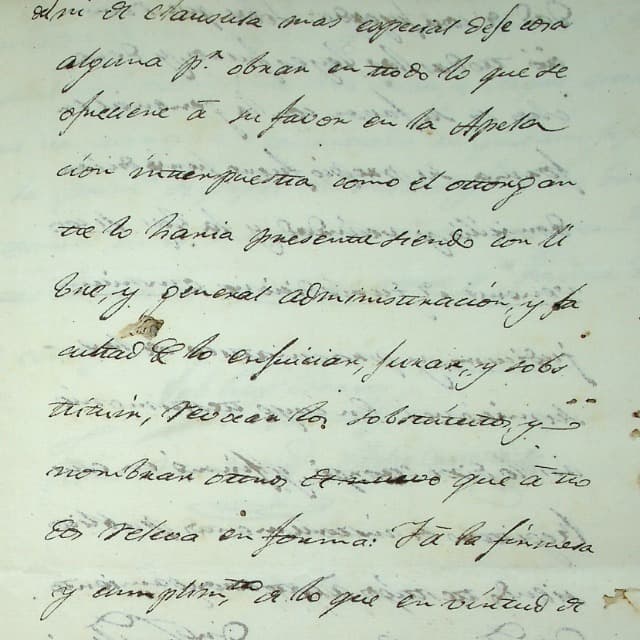 ni de clausula mas especial dese cosa
alguna p.ʳ obrar en ttodo lo que se
ofreciere â su favor en la Apela
cion interpuestta como el ottorgan
tte lo haria presentte siendo con li
bre, y general administtración, y fa
culttad de lo enjuiciar, jurar, y sobs
ttituir, revocar los sobstitutos, y
nombrar ottros de nuevo que â tto
dos releva en forma: Y â la firmesa
y cumplim.tto de lo que en virtud de